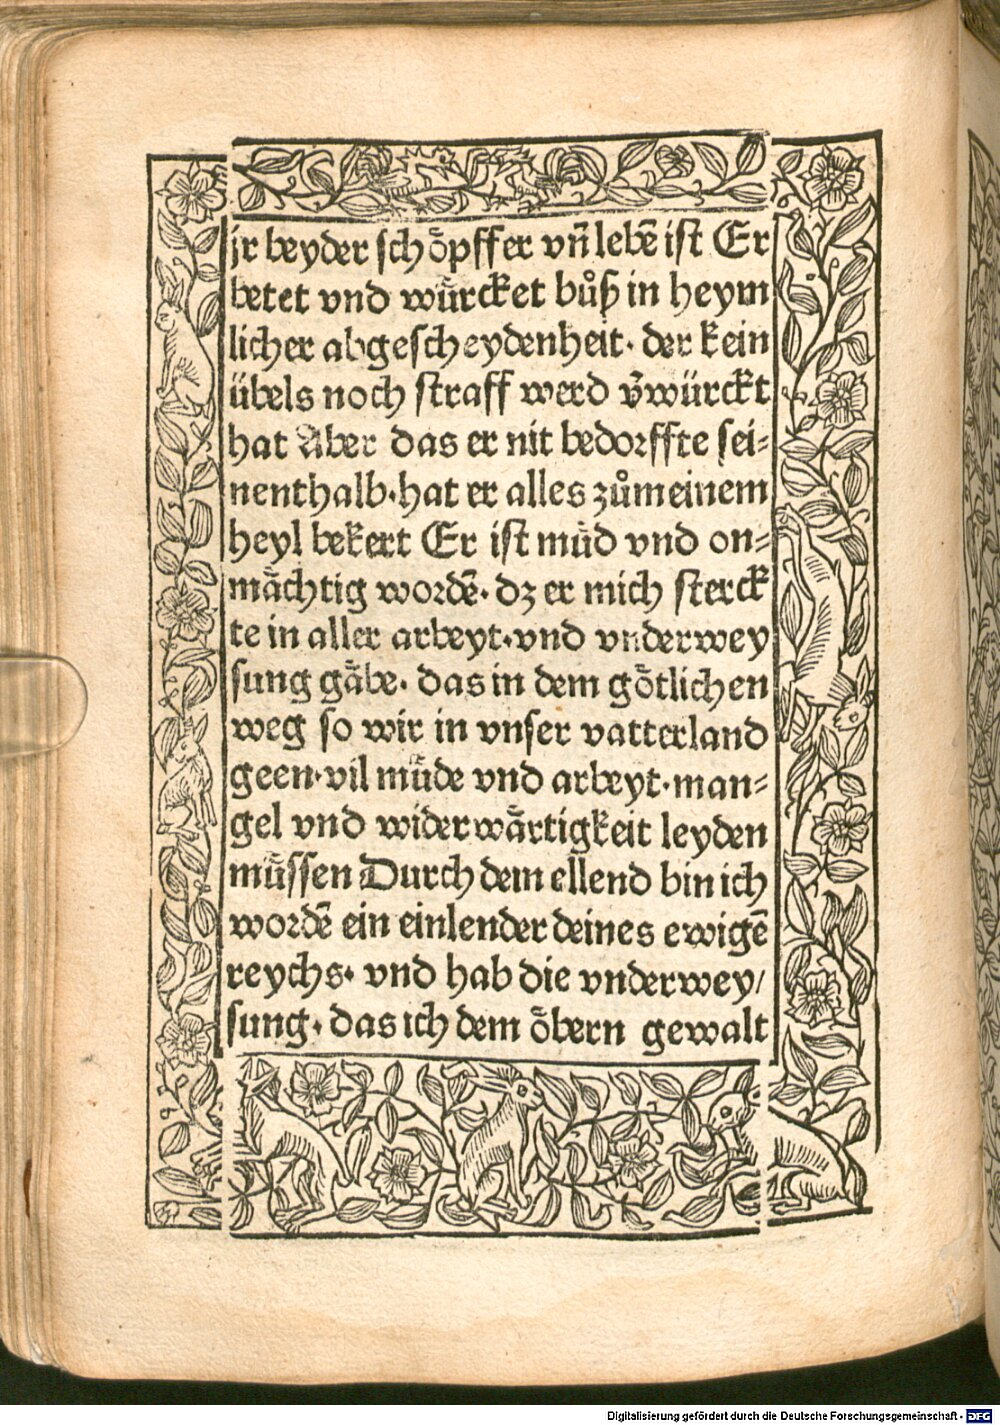 jr beyder schoͤpffer vn̄ lebē ist Er
betet vnd wuͤrcket buͦß in heym
licher abgescheydenheit. der kein
übels noch straff werd v̄würckt
hat Aber das er nit bedorffte sei⸗
nenthalb. hat er alles zuͦ meinem
heyl bekert Er ist muͤd vnd on⸗
maͤchtig wordē. dz er mich sterck
te in aller arbeyt. vnd vnderwey
sung gaͤbe. das in dem goͤtlichen
weg so wir in vnser vatterland
geen. vil muͤde vnd arbeyt. man⸗
gel vnd widerwaͤrtigkeit leyden
muͤssen Durch dem ellend bin ich
wordē ein einlender deines ewigē
reychs. vnd hab die vnderwey/
sung. das ich dem oͤbern gewalt
Digitalisierung gefördert durch die Deutsche Forschungsgemeinschaft - DFG